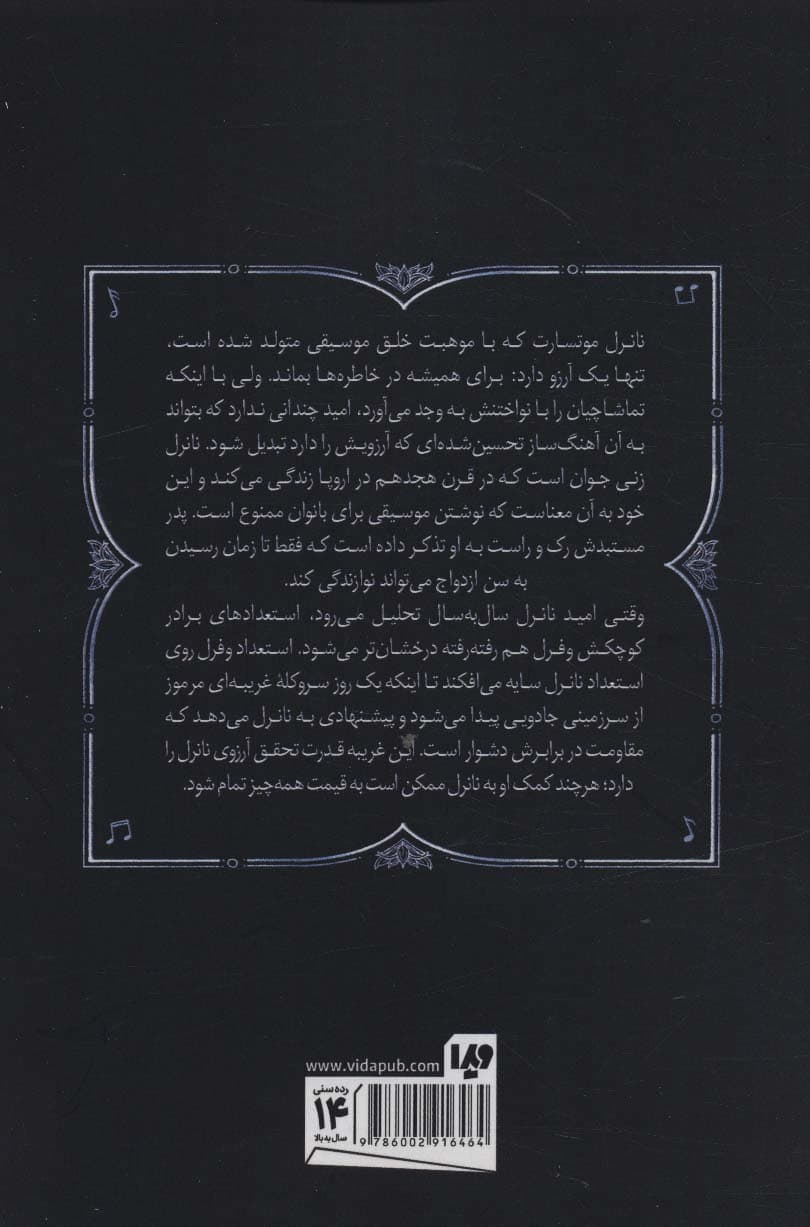 نانرل موتسارت که با موهبت خلق موسیقی متولد شده است،
تنها یک آرزو دارد: برای همیشه در خاطره‌ها بماند. ولی با اینکه
تماشاچیان را با نواختنش به وجد می‌آورد، امید چندانی ندارد که بتواند
به آن آهنگ‌ساز تحسین‌شده‌ای که آرزویش را دارد تبدیل شود. نانرل
زنی جوان است که در قرن هجدهم در اروپا زندگی می‌کند و این
خود به آن معناست که نوشتن موسیقی برای بانوان ممنوع است. پدر
مستبدش رک و راست به او تذکر داده است که فقط تا زمان رسیدن
به سن ازدواج می‌تواند نوازندگی کند.
وقتی امید نانرل سال‌به‌سال تحلیل می‌رود، استعدادهای برادر
کوچکش وفرل هم رفته‌رفته درخشان‌تر می‌شود. استعداد وفرل روی
استعداد نانرل سایه می‌افکند تا اینکه یک روز سروکلهٔ غریبه‌ای مرموز
از سرزمینی جادویی پیدا می‌شود و پیشنهادی به نانرل می‌دهد که
مقاومت در برابرش دشوار است. این غریبه قدرت تحقق آرزوی نانرل را
دارد؛ هرچند کمک او به نانرل ممکن است به قیمت همه‌چیز تمام شود.
www.vidapub.com
ویدا
رده‌سنی
۱۴
سال به بالا
9 786002 916464